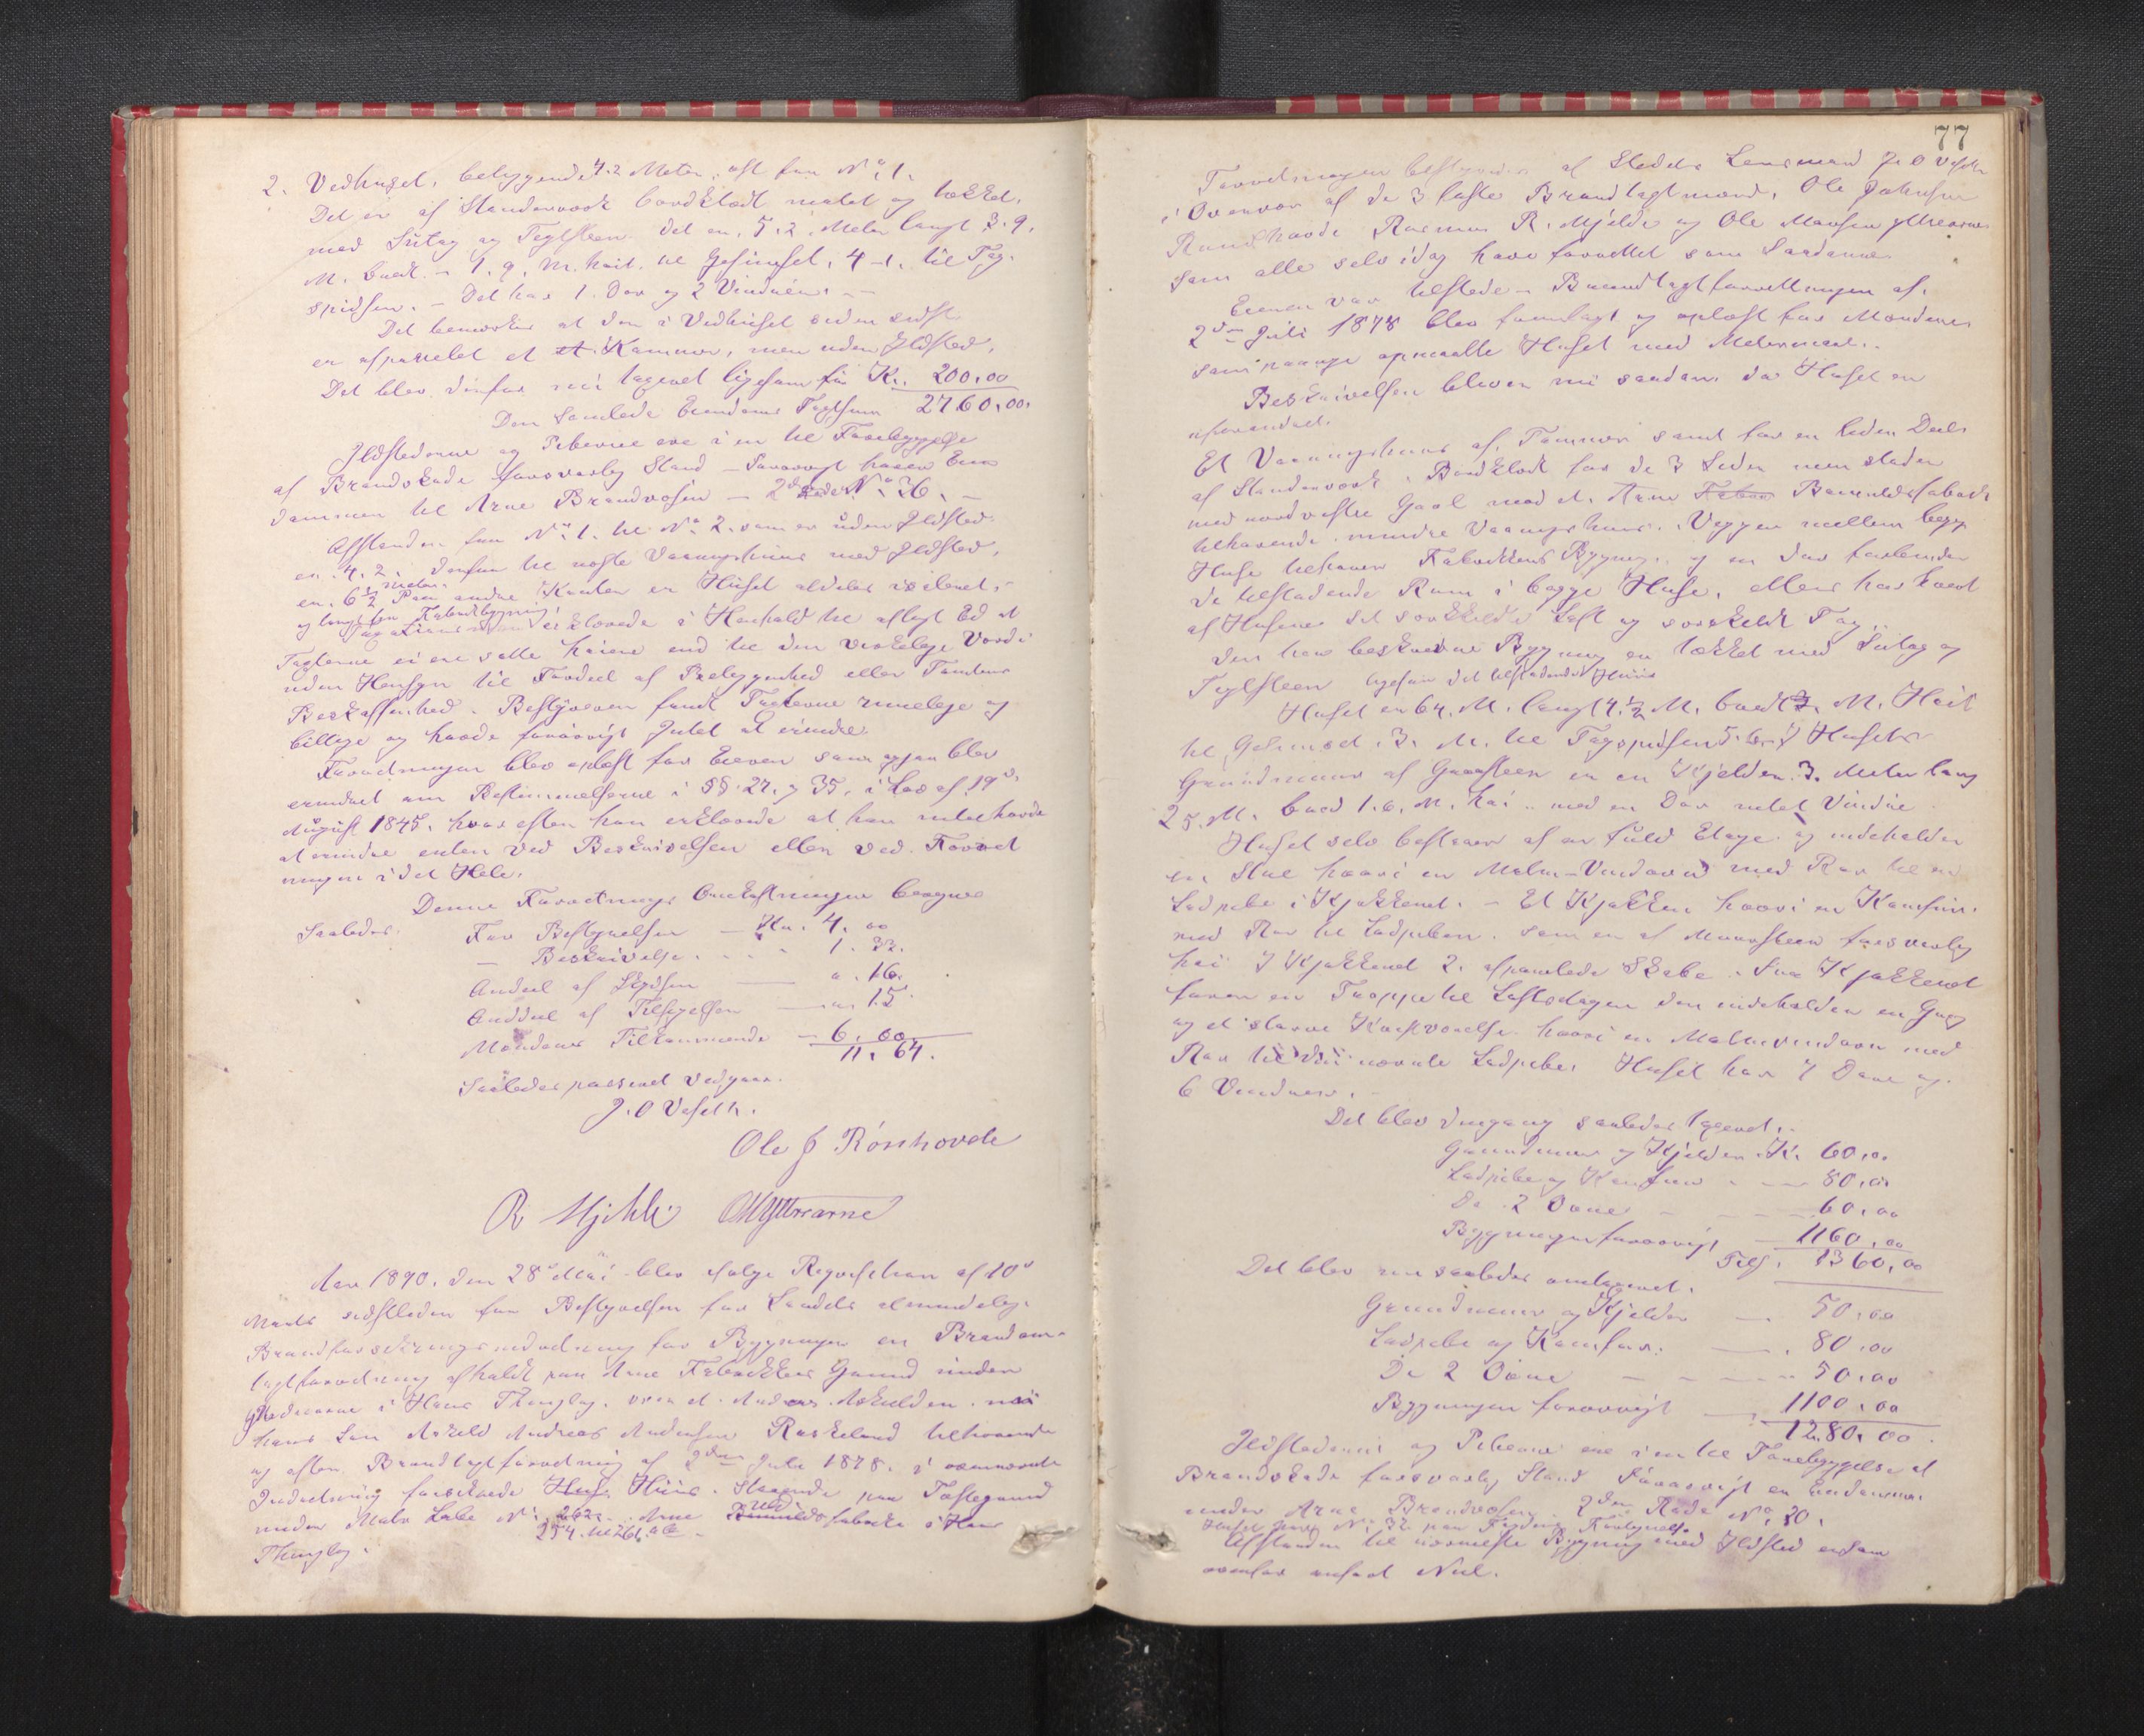 2. Vedhuset, beliggende 4.2 Meter, øst fra No 1.
Det er af Standerværk bordklædt malet og tækket,
med Sutag og Teglsteen. Det er, 5.2. Meter langt 3.9.
M. bredt – 1.9. M. høit til Gesimset, 4-1. til Tag-
spidsen. – Det har 1. Dør og 2 Vinduer. –
Det bemærkes at der i Vedhuset siden sidst
er afpanelet et Kammer, men uden Ildsted.
Det blev derfor nu taxeret ligesom før Kr. 200,00
Den samlede Eiendoms Taxtsum 2760,00.
Ildstederne og Piberne ere i en til Forebyggelse
af Brandskade forsvarlig Stand – Forøvrigt hører Eien-
dommen til Arne Brandrosin – 2de No 36. –
Afstanden fra No 1. til No 2. som er uden Ildsted
er 4.2. derfra til næste Vaaningshuus med Ildsted,
er, 6½ Meter. Paa andre Kanter er Huset aldeles isoleret,
og langt fra Fabrikbygning
Taxationsmændene erklærede i Henhold til aflagt Ed at
Taxterne ei ere satte høiere end til den virkelige Værdi
uden Hensyn til Fordeel af Beliggenhed eller Tomtens
Beskaffenhed. Bestyreren fandt Taxterne rimelige og
billige og havde forøvrigt Intet at erindre.
Forretningen blev oplæst for Eieren som ogsaa blev
erindret om Bestemmelserne i §§ 27. og 35. i Lov af 19de
August 1845, hvorefter han erklærede at han intet havde
at erindre enten ved Beskrivelsen eller ved Forret
ningen i det Hele.
Denne Forretnings Omkostninger beregnes
saaledes:
For Bestyrelsen – Kr. 4,00
– Beskrivelse . . . " 1.33.
Andeel af Skydsen — ". 16.
Anddeel af Tilsigelsen — " 15
Mændenes Tilkommende – 6,00
11,64.
Saaledes passeret vedgaaes.
J. O Vefelth.
Ole J Rönhovde
R Mjelde OMYttrearne
Aar 1890, den 28de Mai blev ifølge Reqvisition af 10de
Marts sidstleden fra Bestyrelsen for Landets almindelige
Brandforsikringsindretning for Bygninger en Brandom-
taxtforretning afholdt paa Arne Fabrikkers Grund under
Ytrearne i Haus Thinglag, over et Anders Askelden nu
hans Søn Askild Andreas Andersen Raskeland tilhørende
og efter Brandtaxtforretning af 2den Juli 1878. i samme
Indretning forsikrede Huus. Staaende paa Fastegrund
under Matr Løbe No. 262. Arne Uldfabrikke i Haus
254. til 261. ab
Thinglag.
77
Forretningen bestyredes af Stedets Lensmand J. O Vefelth
i Overvær af de 3 faste Brandtaxtmænd, Ole Johnsen
Rønhovde Rasmus R. Mjelde og Ole Monsen Yttrearne
som alle selv idag have forrettet som Saadanne.
Eieren var tilstede – Brandtaxtforretningen af
2den Juli 1878 blev fremlagt og oplæst for Mændene
som paany opmaalte Huset med Metermaal. –
Beskrivelsen bliver nu saadan, da Huset er
uforandret.
Et Vaaningshuus af, Tømmer samt for en liden Deel
af Standerværk. Bordklædt for de 3 Sider men støder
med nordvestre Gavl mod et, Arne Bomuldsfabrik
tilhørende mindre Vaaningshuus. Væggen mellem begge
Huse tilhører Fabrikkens Bygning og en Dør forbinder
de tilstødende Rum i begge Huse, ellers har hvert
af Husene sit særskilte Loft og særskilt Tag
Den her beskrevne Bygning er tækket med Sutag og
Teglsteen ligesom det tilstødende Huus
Huset er 64. M. langt 4½ M. bredt M. Høit
til Gesimset. 3. M. til Tagspidsen 5. I Husets
Grundmuur af Graasteen er en Kjelder. 3. Meter lang
2 5. M. bred 1.6. M. høi – med en Dør intet Vindue.
Huset selv bestaaer af en fuld Etage. og indeholder
en Stue hvori en Malm-Vindovn med Rør til en
Ladpibe i Kjøkkenet. – Et Kjøkken hvori en Komfur
med Rør til Ladpiben. som er af Muursteen forsvarlig
høi I Kjøkkenet 2. afpanelede Skabe. Fra Kjøkkenet
fører en Trappe til Loftsetagen der indeholder en Gang
og et større Kvistværelse hvori en Malmvindovn med
Rør til den nævnte Ladpibe. Huset har 7 Døre og
6 Vinduer. –
Det blev dengang saaledes taxeret. –
Grundmuur og Kjelder Kr. 60,00
Ladpibe og Komfur – — 80,00
De 2 Ovne – – – – 60,00
Bygningen forøvrigt — 1160,00
Tils. 1360,00
Det blev nu saaledes omtaxeret.
Grundmuur og Kjelder — 50,00
Ladpibe og Komfur. — , 80,00
De 2 Ovne – – – – 50,00
Bygningen forøvrigt — 1100,00
1280,00
Ildstederne og Piberne ere i en til Forebyggelse af
Brandskade forsvarlig Stand Forøvrigt er Eiendommen
under Arne Brandrosin 2den Rode No 30.
Afstanden til nærmeste Bygning med Ildsted er som
ovenfor anført Nul.